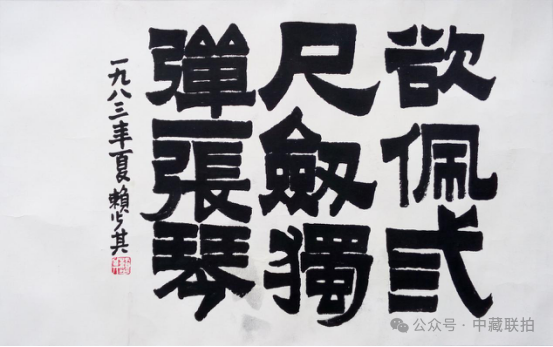 欲佩弍
尺劔獨
彈一張琴
一九八三年夏賴少其
公众号·中藏联拍